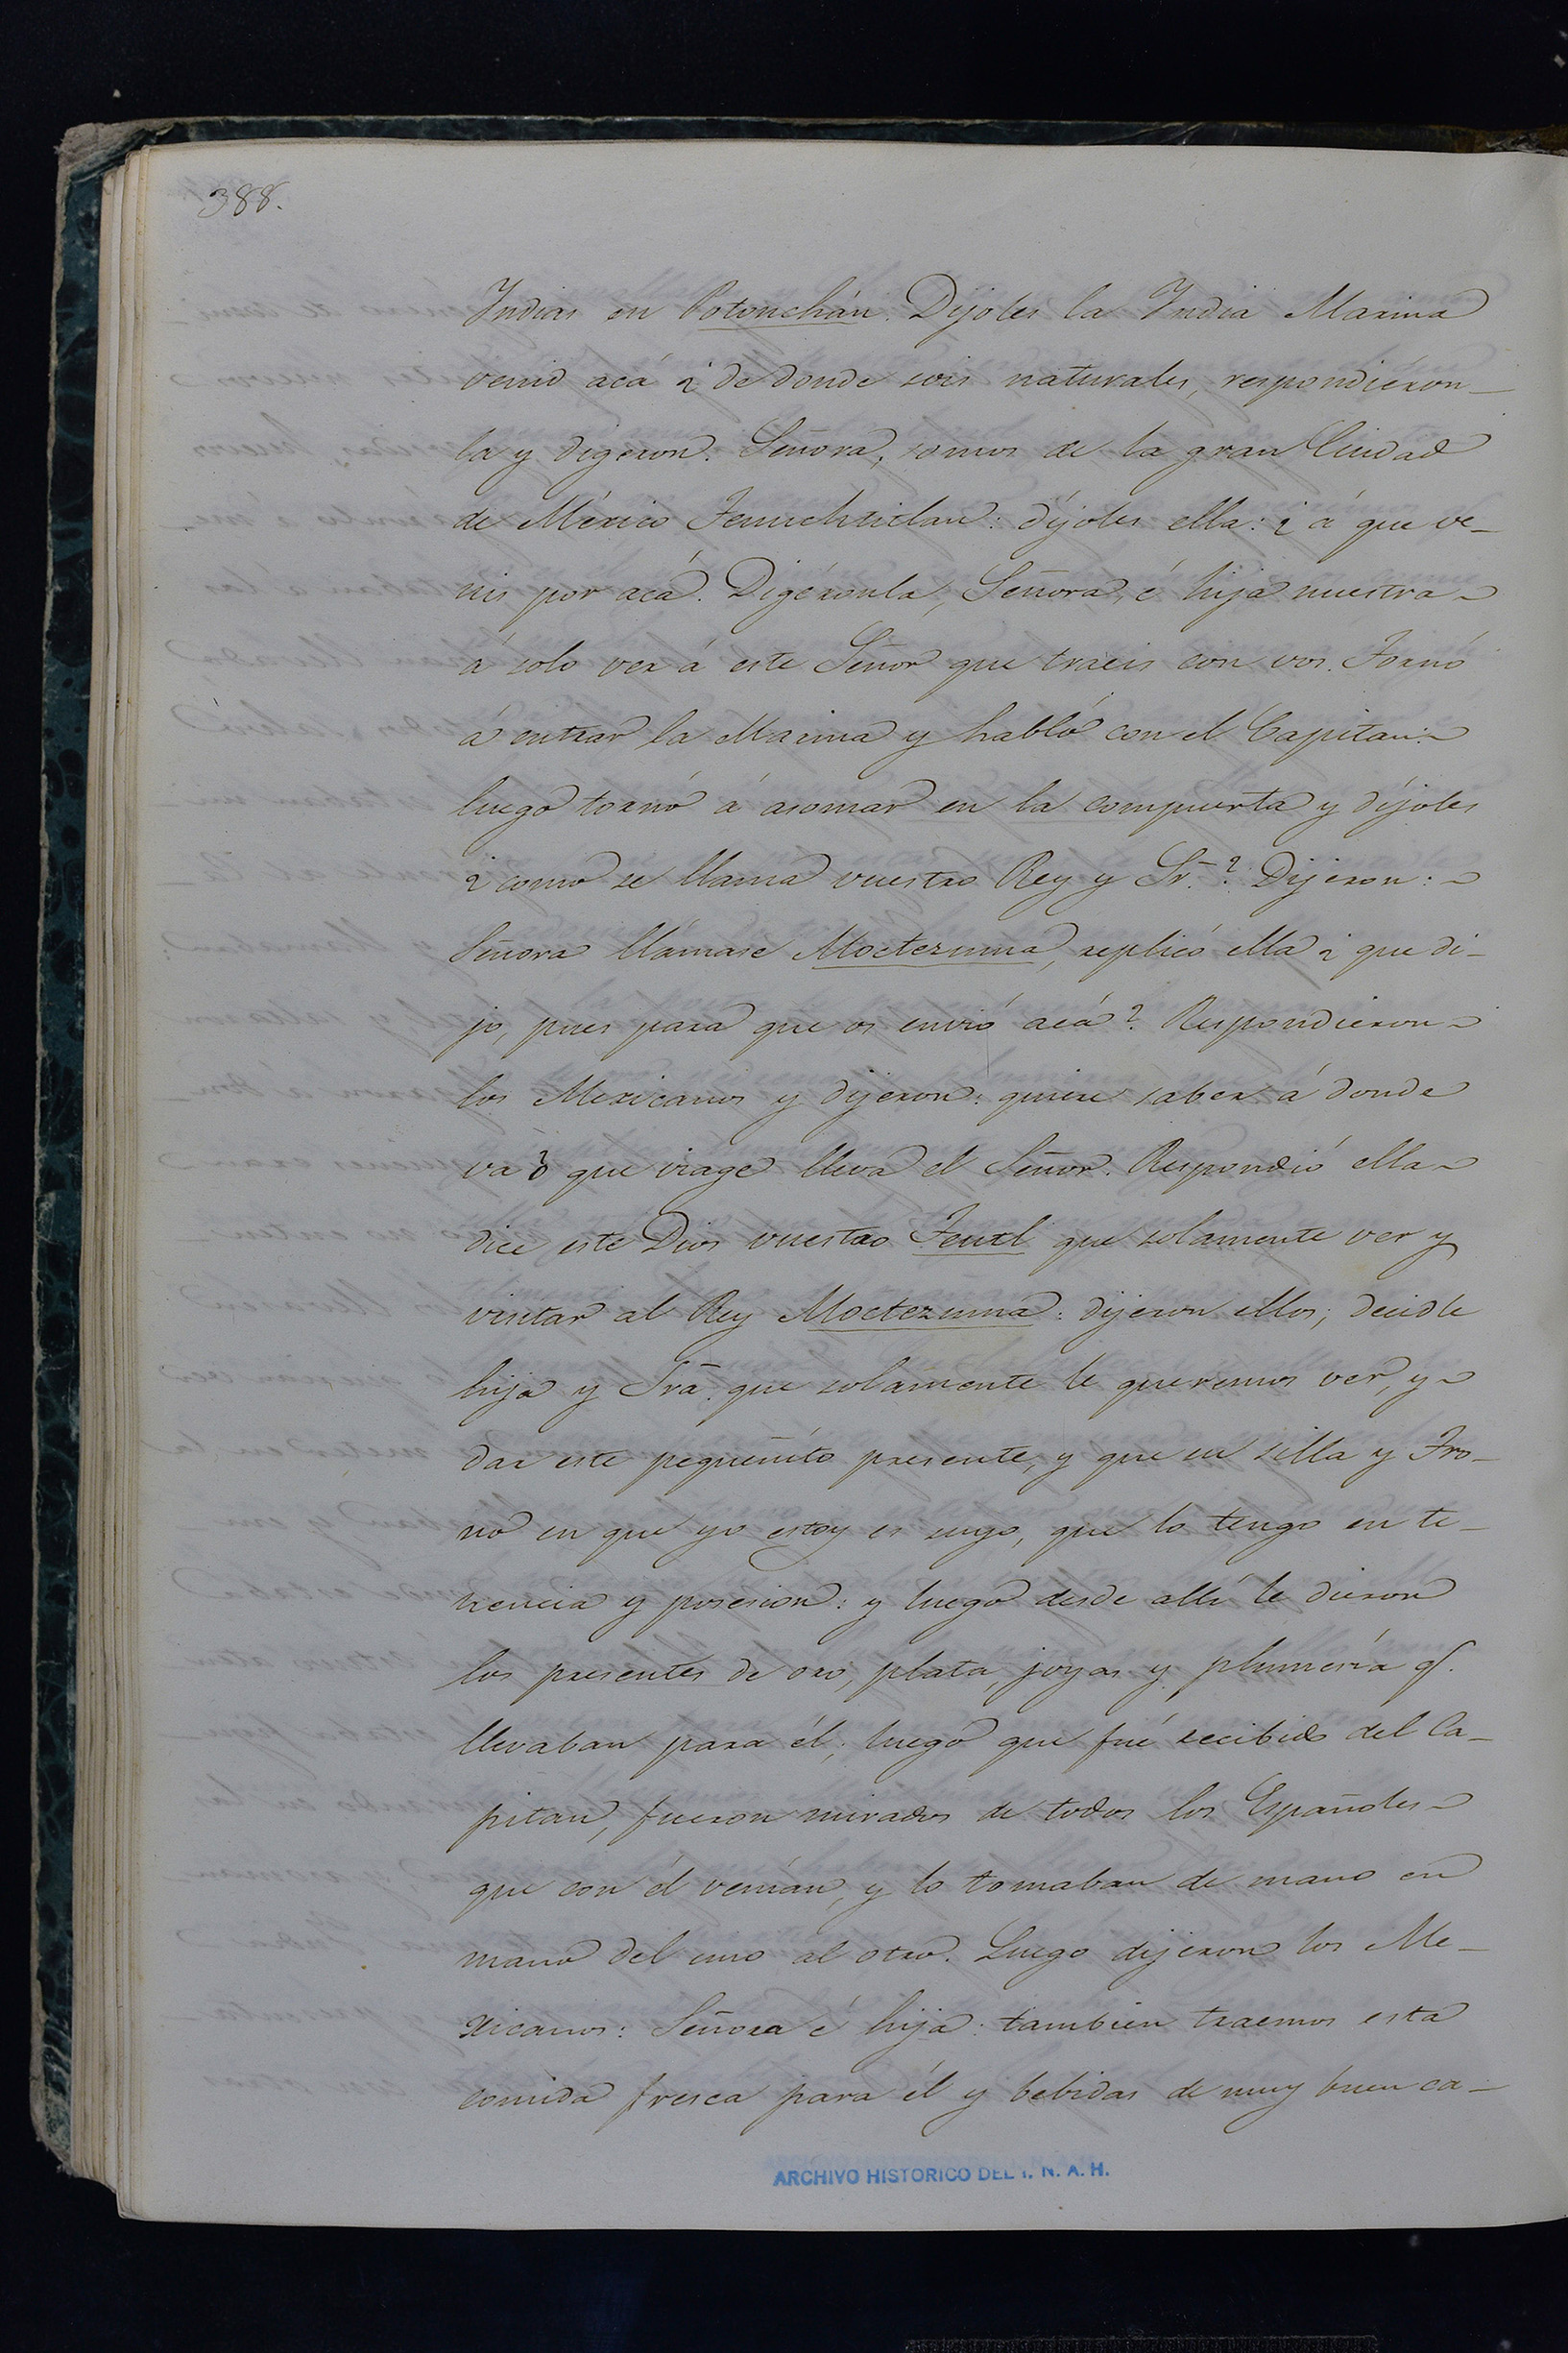 388.
Indias en Potonchán. Díjoles la India Marina
venid acá ¿ de donde sois naturales, respondiéron–
la y digeron. Señora, somos de la gran Ciudad
de México Tenuchtitlan: díjoles ella: ¿ á que ve–
nis por acá. Digéronla, Señora, é hija nuestra
á solo ver á este Señor que traeis con vos. Tornó
á entrar la Marina y habló con el Capitan:
luego tornó á asomar en la compuerta y díjoles
¿ como se llama vuestro Rey y Sr.? Dijeron:
Señora llámase Moctezuma, replicó ella ¿ que di–
jo, pues para que os envió acá? Respondieron
los Mexicanos y dijeron: quiere saber á donde
va ó que viage lleva el Señor. Respondió ella
dice este Dios vuestro Teutl que solamente ver y
visitar al Rey Moctezuma: dijeron ellos, decidle
hija y Sra. que solamente le queremos ver, y
dar este pequeñito presente, y que su silla y Tro–
no en que yo estoy es suyo, que lo tengo en te–
nencia y posesion: y luego desde allí le dieron
los presentes de oro, plata, joyas y plumería q.
llevaban para él; luego que fué recibido del Ca–
pitan, fueron mirados de todos los Españoles
que con él venían, y lo tomaban de mano en
mano del uno al otro. Luego dijeron los Me–
xicanos: Señora é hija: tambien traemos esta
comida fresca para él y bebidas de muy buen ca–
ARCHIVO HISTORICO DEL I. N. A. H.